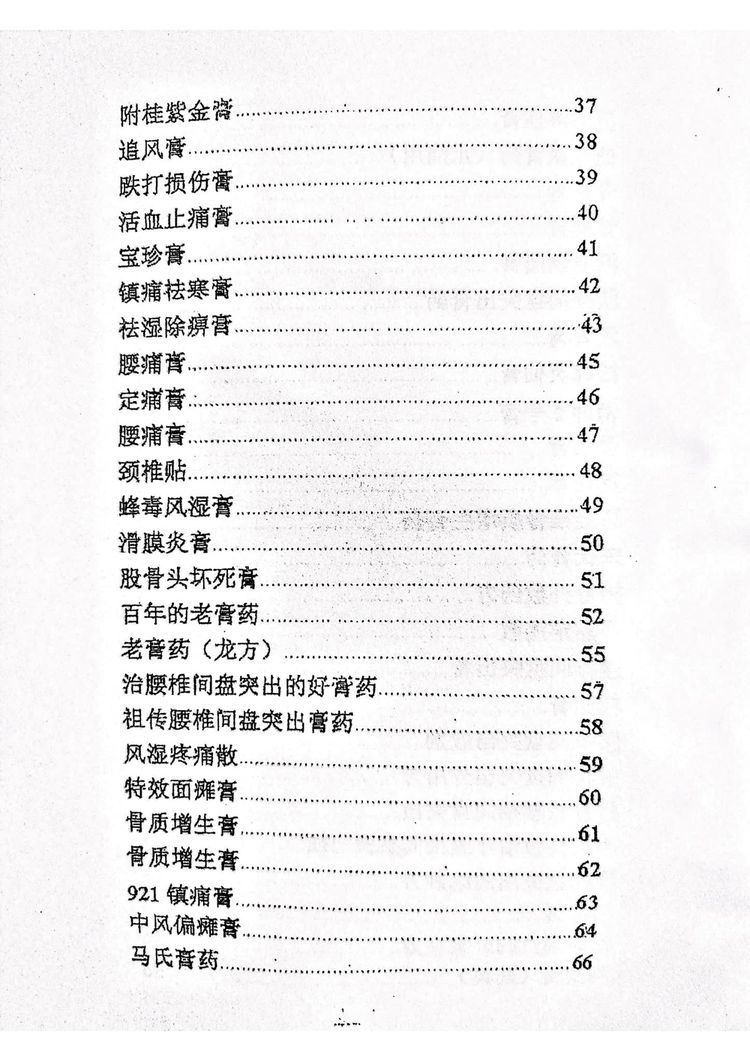 附桂紫金膏................................37
追风膏................................38
跌打损伤膏................................39
活血止痛膏................................40
宝珍膏................................41
镇痛祛寒膏................................42
祛湿除痹膏................................43
腰痛膏................................45
定痛膏................................46
腰痛膏................................47
颈椎贴................................48
蜂毒风湿膏................................49
滑膜炎膏................................50
股骨头坏死膏................................51
百年的老膏药................................52
老膏药（龙方）................................55
治腰椎间盘突出的好膏药................................57
祖传腰椎间盘突出膏药................................58
风湿疼痛散................................59
特效面瘫膏................................60
骨质增生膏................................61
骨质增生膏................................62
921 镇痛膏................................63
中风偏瘫膏................................64
马氏膏药................................66